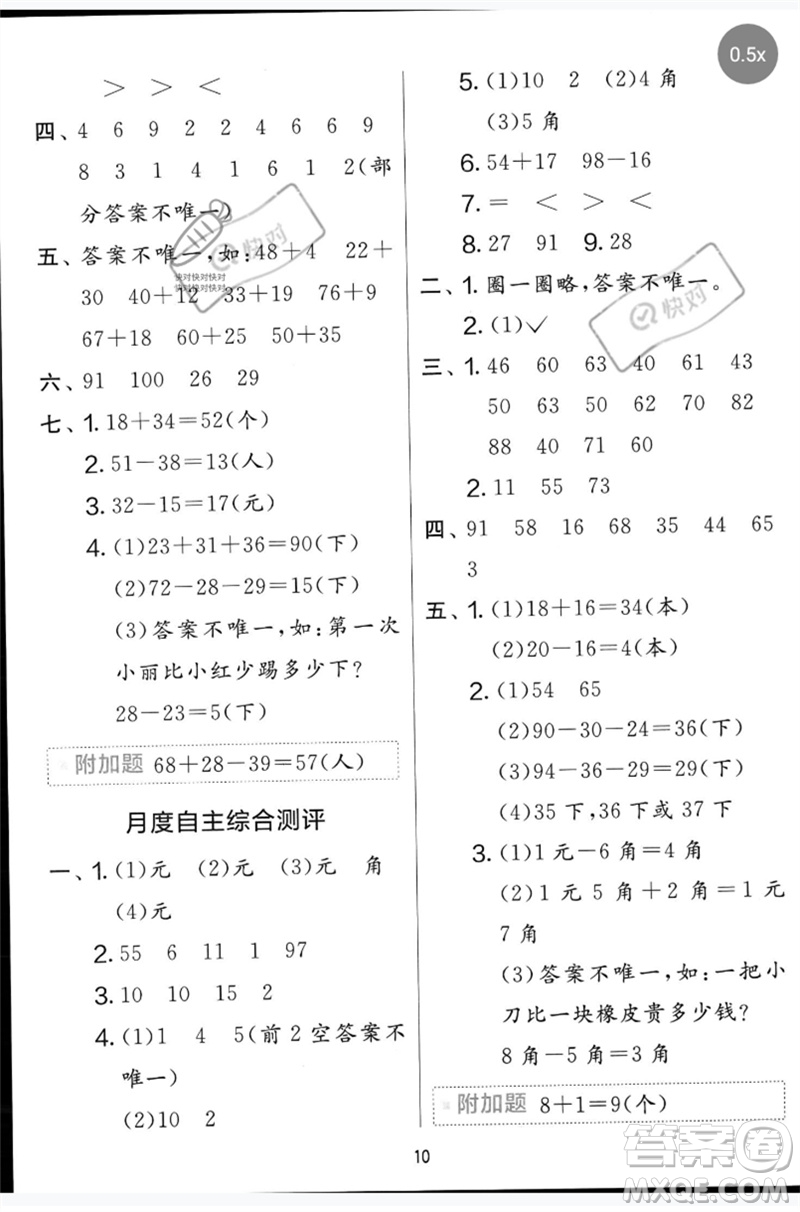 0.5x
＞ ＞ ＜
四、4 6 9 2 2 4 6 6 9
8 3 1 4 1 6 1 2(部
分答案不唯一)
五、答案不唯一,如:48＋4 22＋
30 40＋12 33＋19 76＋9
67＋18 60＋25 50＋35
六、91 100 26 29
七、1. 18＋34＝52(个)
2. 51－38＝13(人)
3. 32－15＝17(元)
4. (1)23＋31＋36＝90(下)
(2)72－28－29＝15(下)
(3)答案不唯一,如:第一次
小丽比小红少踢多少下?
28－23＝5(下)
附加题 68＋28－39＝57(人)
月度自主综合测评
一、1. (1)元 (2)元 (3)元 角
(4)元
2. 55 6 11 1 97
3. 10 10 15 2
4. (1)1 4 5(前2空答案不
唯一)
(2)10 2
5. (1)10 2 (2)4角
(3)5角
6. 54＋17 98－16
7. ＝ ＜ ＞ ＜
8. 27 91 9. 28
二、1. 圈一圈略,答案不唯一。
2. (1)✓
三、1. 46 60 63 40 61 43
50 50 63 62 70 82
88 40 70 60
2. 11 55 73
四、91 58 16 68 35 44 65
3
五、1. (1)18＋16＝34(本)
(2)20－16＝4(本)
2. (1)54 65
(2)90－30－24＝36(下)
(3)94－36－29＝29(下)
(4)35下、36下或37下
3. (1)1元－6角＝4角
(2)1元5角＋2角＝1元
7角
(3)答案不唯一,如:一把小
刀比一块橡皮贵多少钱?
8角－5角＝3角
附加题 8＋1＝9(个)
10
快对
快对
快对快对快对
快对快对快对
答案卷
MXQE.COM